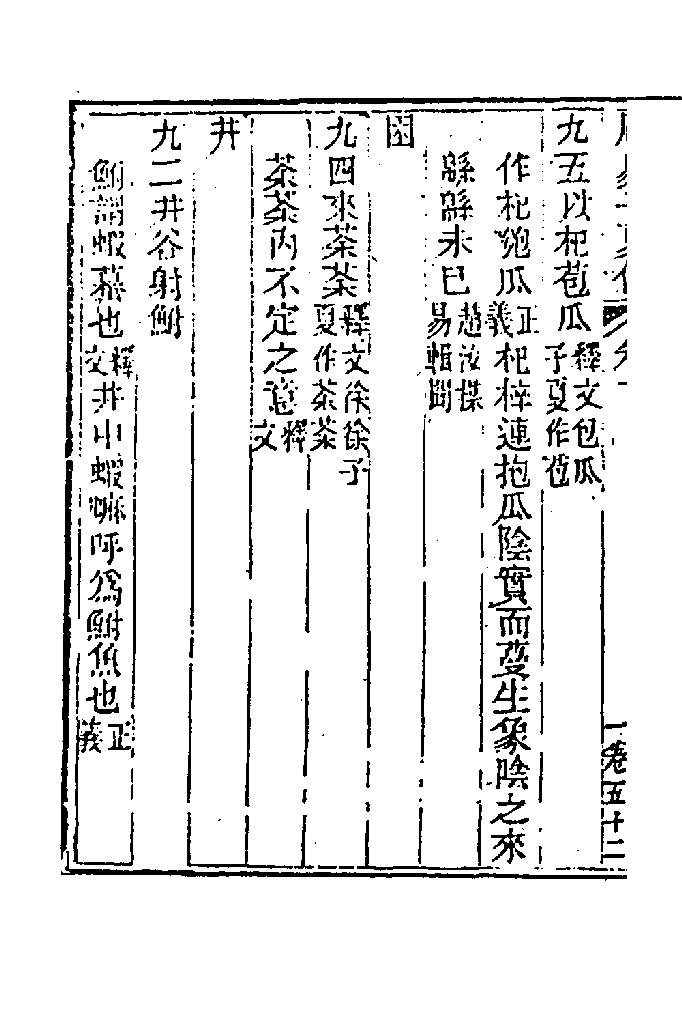 九五以杞苞瓜釋文包瓜子夏作苞
作杞匏瓜正義杞梓連抱瓜陰實而蔓生象陰之來
緜緜未已趙汝楳易輯聞
困
九四來荼荼釋文徐徐子夏作荼荼
荼荼內不定之意釋文
井
九二井谷射鮒
鮒謂蝦蟇也釋文井中蝦蟆呼爲鮒魚也正義
卷五十二